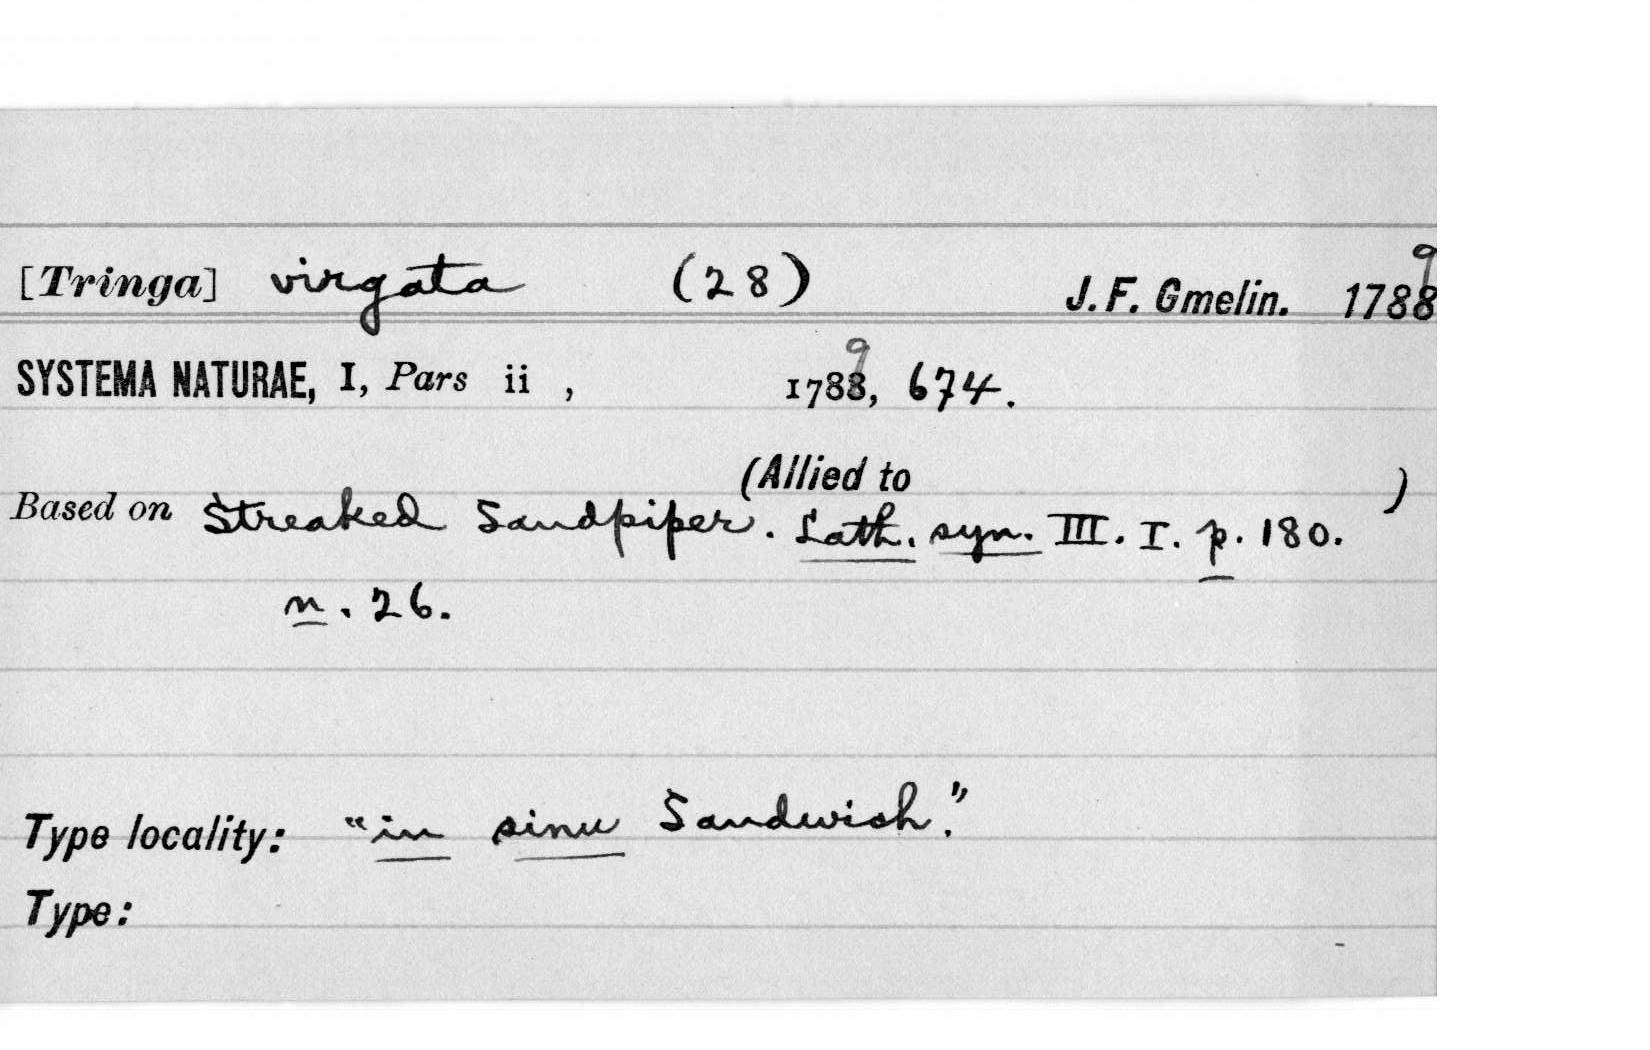 [Tringa] virgata (28) J. F. Gmelin. 1788 9
SYSTEMA NATURAE, I, Pars ii , 1788, 9 674.
(Allied to )
Based on Streaked Sandpiper. Lath. syn. III. I. p. 180.
n. 26.
Type locality: "in sinu Sandwich."
Type: